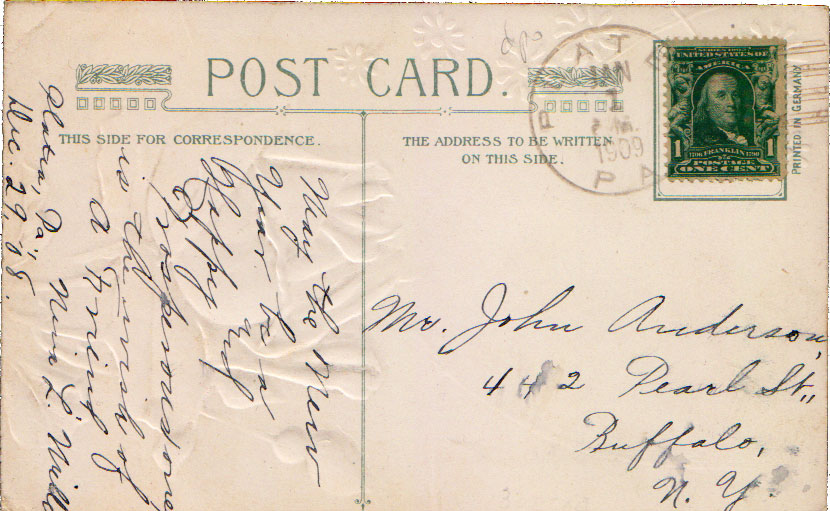 POST CARD.
THIS SIDE FOR CORRESPONDENCE.
THE ADDRESS TO BE WRITTEN
ON THIS SIDE.
PLATEA
JAN
1
P.M.
1909
PA
SERIES 1902
UNITED STATES OF
AMERICA
1 1706 FRANKLIN 1790 1
POSTAGE
ONE CENT
PRINTED IN GERMANY
Platea, Pa.,
Dec. 29, '08.
May the New
Year be a
Happy and
Prosperous one
is the wish of
A Friend
Nina L.
Mr. John Anderson,
442 Pearl St.,
Buffalo,
N. Y.